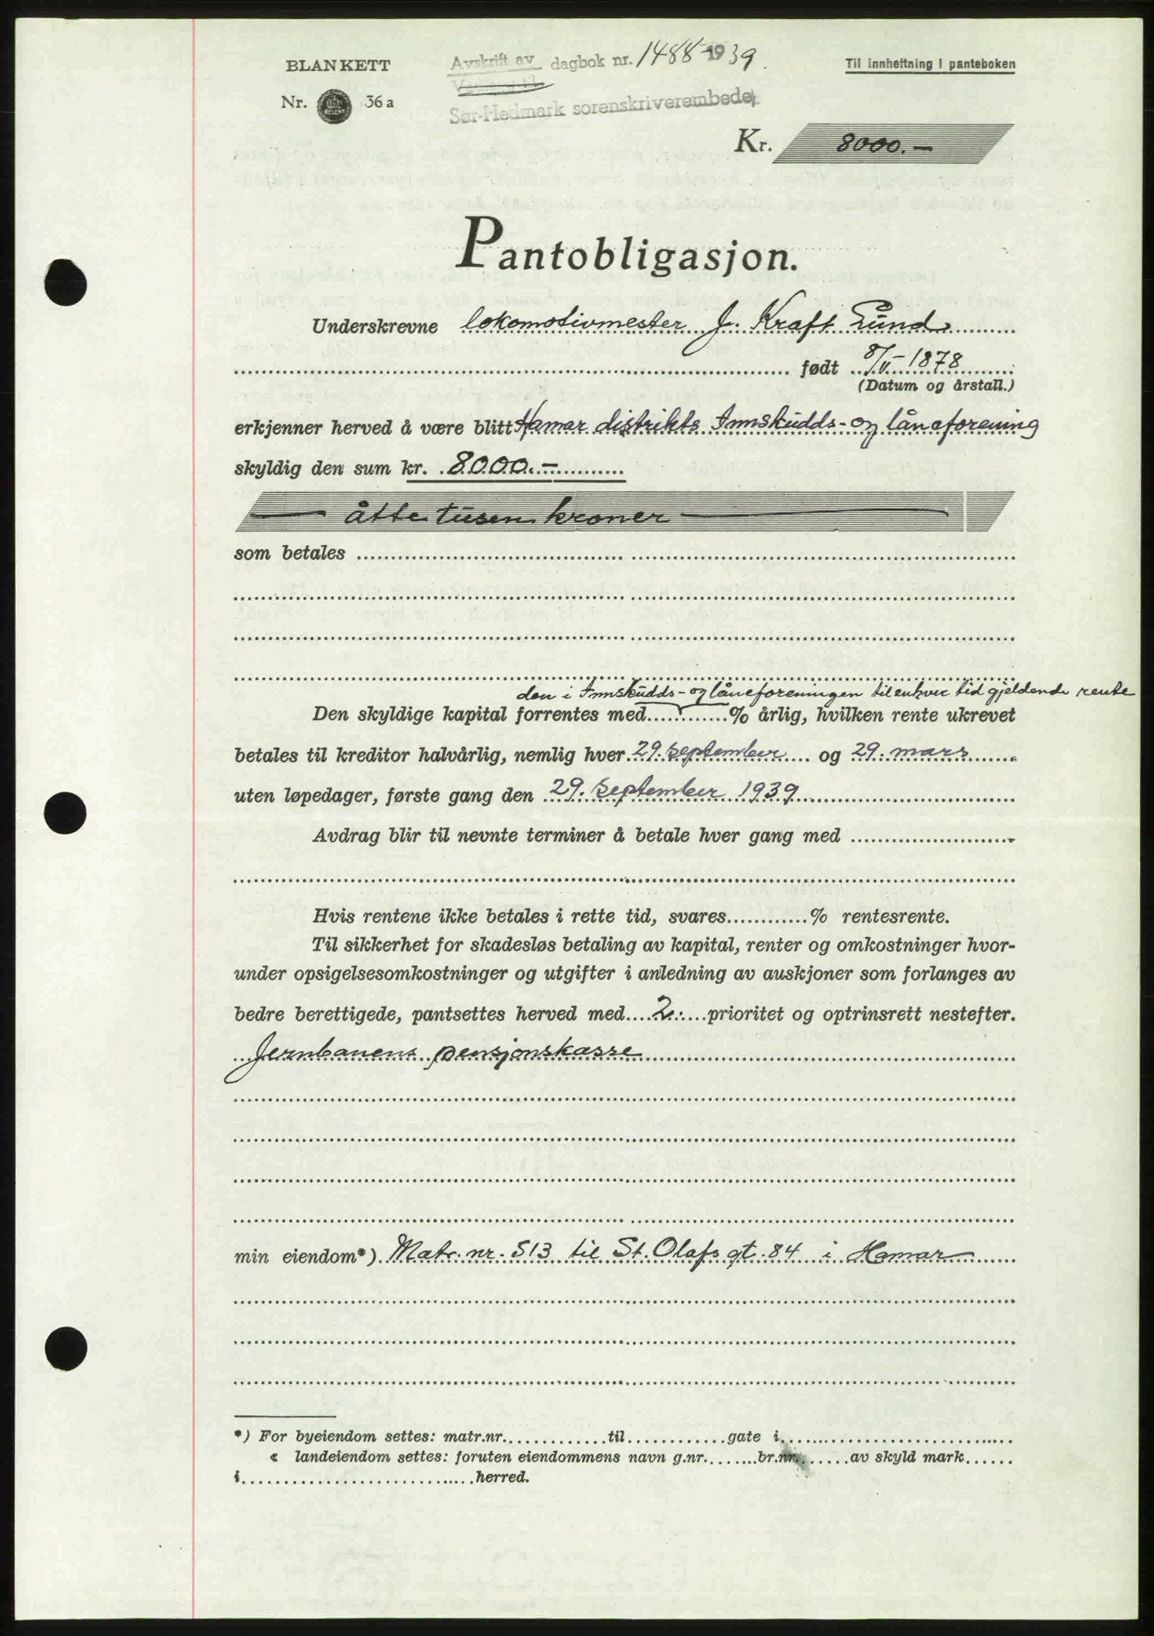 BLANKETT
Nr. 36 a
Avskrift av dagbok nr. 1488-1939.
Sør-Hedmark sorenskriverembede.
Til innheftning i panteboken
Kr. 8000.-
Pantobligasjon.
Underskrevne lokomotivmester J. Kraft Lund
født 8/V-1878
(Datum og årstall.)
erkjenner herved å være blitt Hamar distrikts Innskudds- og låneforening
skyldig den sum kr. 8000.-
åtte tusen kroner
som betales
den i Innskudds- og låneforeningen til enhver tid gjeldende rente
Den skyldige kapital forrentes med % årlig, hvilken rente ukrevet
betales til kreditor halvårlig, nemlig hver 29. september og 29. mars
uten løpedager, første gang den 29. september 1939
Avdrag blir til nevnte terminer å betale hver gang med
Hvis rentene ikke betales i rette tid, svares............% rentesrente.
Til sikkerhet for skadesløs betaling av kapital, renter og omkostninger hvor-
under opsigelsesomkostninger og utgifter i anledning av auksjoner som forlanges av
bedre berettigede, pantsettes herved med 2. prioritet og optrinsrett nestefter.
Jernbanens pensjonskasse
min eiendom*) Matr. nr. 513 til St. Olafs gt. 84 i Hamar
*) For byeiendom settes: matr.nr.............til............gate i.............................
« landeiendom settes: foruten eiendommens navn g.nr........br.nr........av skyld mark......
i.............................herred.